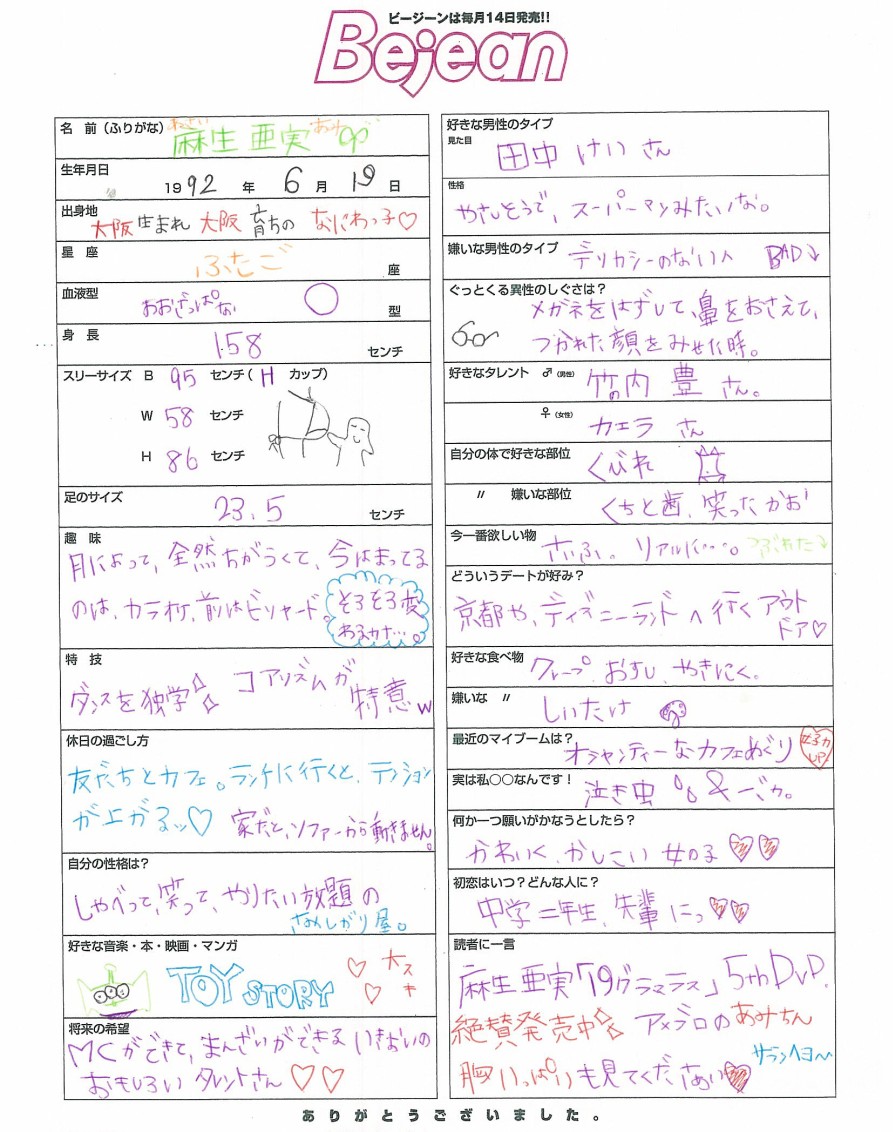 ビージーンは毎月14日発売!!
Bejean
名 前(ふりがな) 麻生 亜実 あみ
生年月日
1992 年 6 月 19 日
出身地
大阪生まれ 大阪 育ちの なにわっ子♡
星 座 ふたご 座
血液型 おおざっぱな ○ 型
身 長 158 センチ
スリーサイズ B 95 センチ( H カップ)
W 58 センチ
H 86 センチ
足のサイズ 23.5 センチ
趣 味
月によって、全然ちがうくて、今はまってる
のは、カラオケ、前はビリヤード。そろそろ変
わるカナ…。
特 技
ダンスを独学 コアリズムが
特意w
休日の過ごし方
友だちとカフェ。ランチに行くと、テンション
が上がるッ♡ 家だと、ソファーから動きません。
自分の性格は?
しゃべって、笑って、やりたい放題の
さみしがり屋。
好きな音楽・本・映画・マンガ
TOY STORY ♡ ♡ 大スキ
将来の希望
MCができて、まんざいができるいきおいの
おもしろい タレントさん ♡♡
好きな男性のタイプ
見た目
田中 けい さん
性格
やさしそうで、スーパーマンみたいな。
嫌いな男性のタイプ デリカシーのない人 BAD↓
ぐっとくる異性のしぐさは?
メガネをはずして、鼻をおさえて、
つかれた顔をみせた時。
好きなタレント ♂(男性) 竹の内 豊 さん。
♀(女性) カエラ さん
自分の体で好きな部位 くびれ
〃 嫌いな部位 くちと歯、笑ったかお
今一番欲しい物
さいふ。リアルに…。つぶれた↓
どういうデートが好み?
京都や、ディズニーランドへ行く アウト
ドア♡
好きな食べ物 クレープ おすし やきにく。
嫌いな 〃 しいたけ
最近のマイブームは? オシャンティーなカフェめぐり 女子力UP
実は私○○なんです! 泣き虫
何か一つ願いがかなうとしたら?
かわいく、かしこい 女の子
初恋はいつ?どんな人に?
中学二年生、先輩 にっ
読者に一言
麻生 亜実「19グラマラス」5thDVD。
絶賛発売中 アメブロのあみちん
胸いっぱいも見てくださぁい サランヘヨ〜
ありがとうございました。